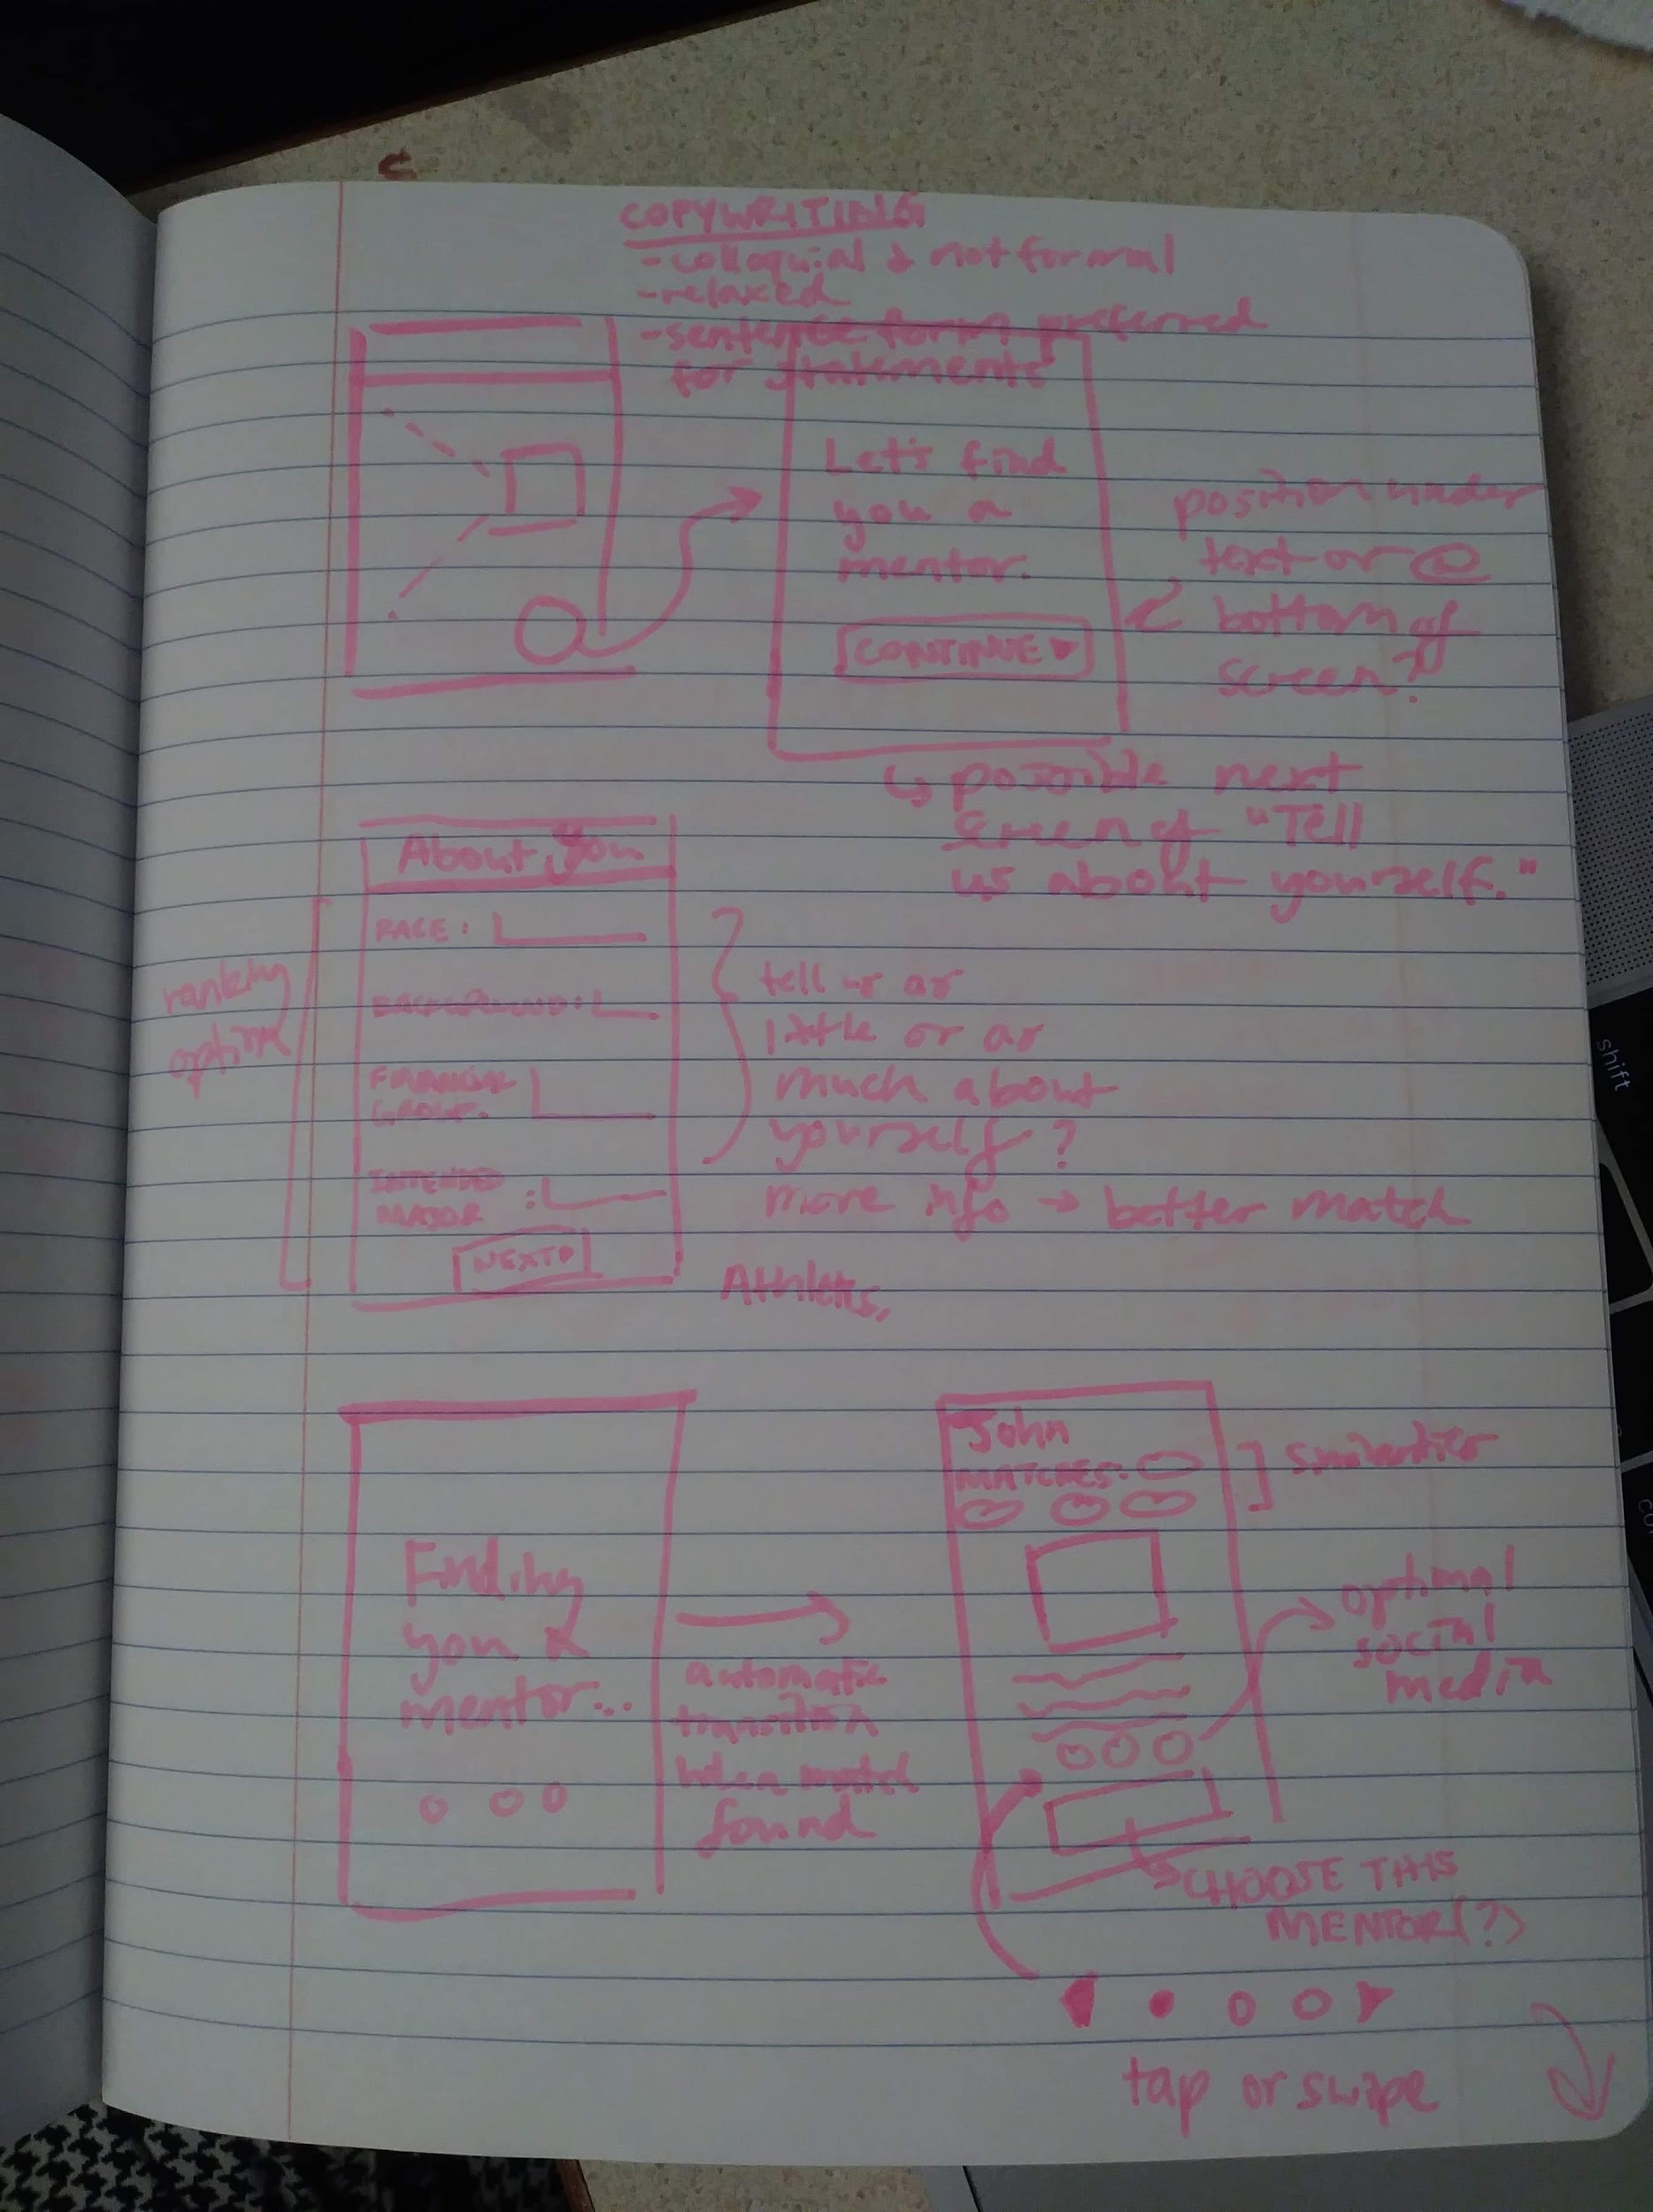 COPYWRITING
- colloquial & not formal
- relaxed
- sentence form preferred
for statements
Let's find
you a
mentor.
CONTINUE
position under
text or @
bottom of
screen?
↳ possible next
screen of "Tell
us about yourself."
About you
RACE:
BACKGROUND:
GROUP:
INTENDED
MAJOR :
NEXT
ranking
option
tell us as
little or as
much about
yourself?
more info → better match
Athletes,
Finding
you a
mentor...
automatic
transition
when match
found
John
MATCHES:
similarities
optimal
social
media
CHOOSE THIS
MENTOR(?)
tap or swipe
shift